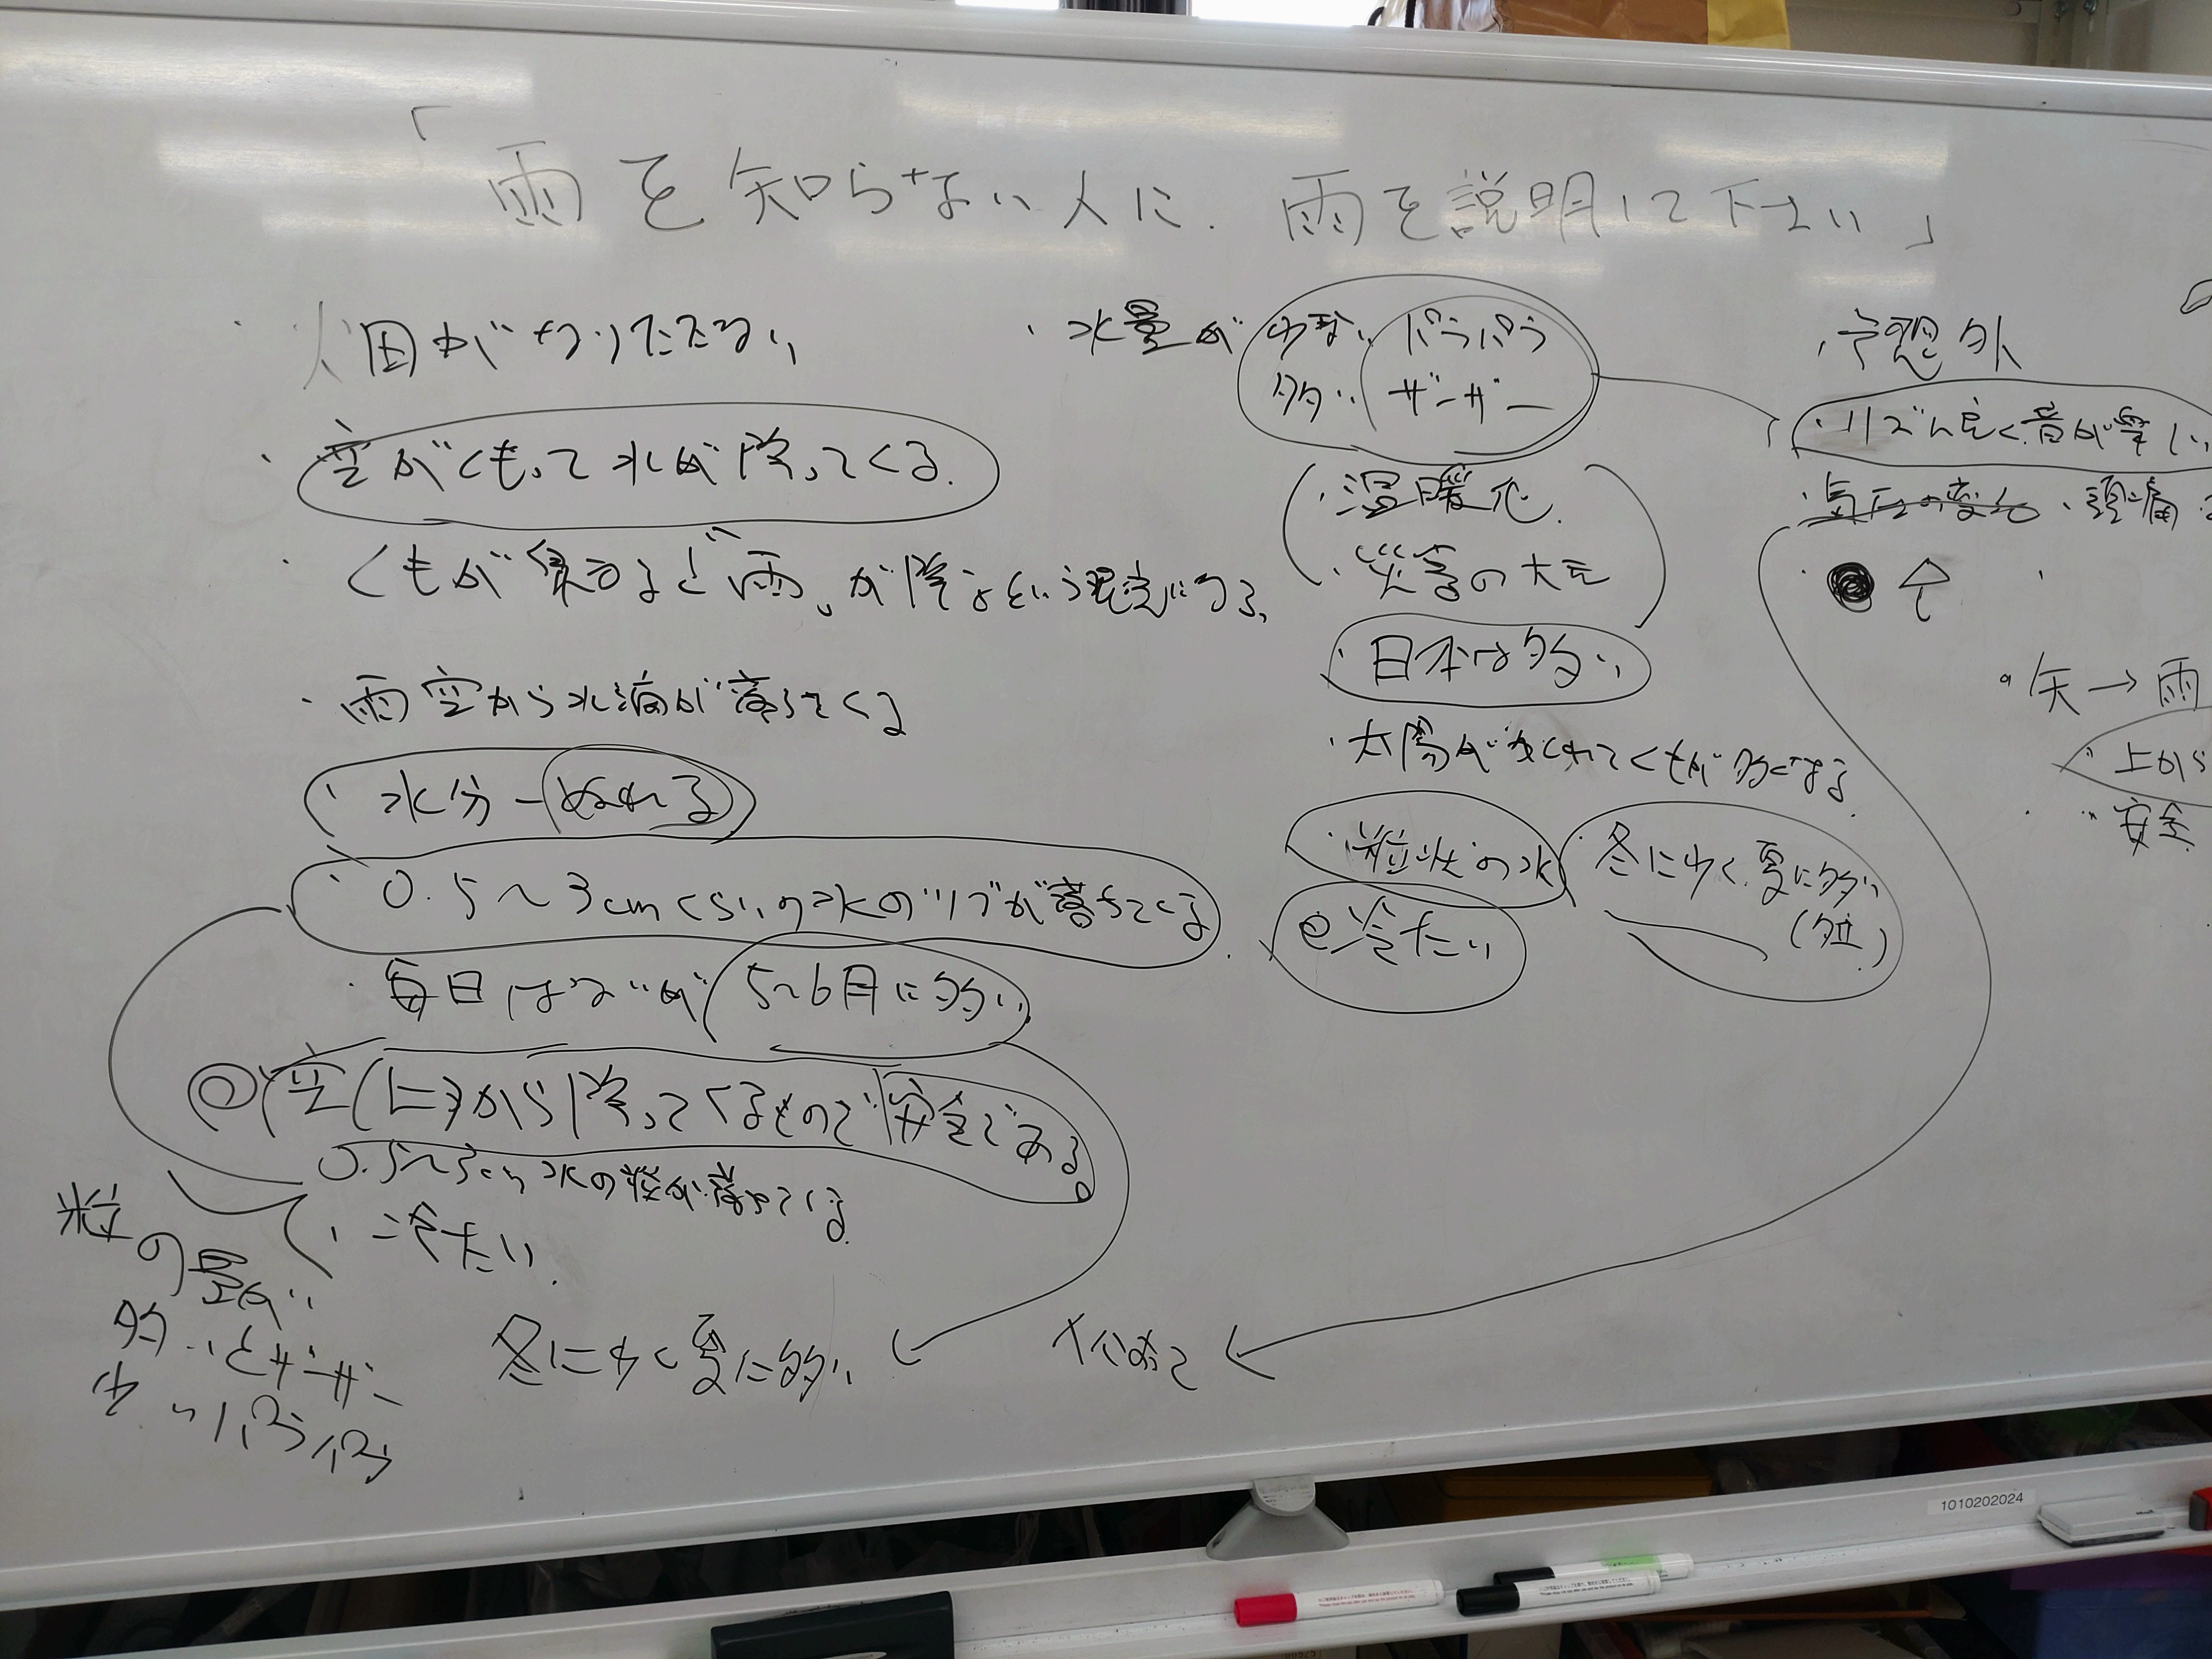 「雨を知らない人に. 雨を説明して下さい」
・空がくもって水が降ってくる.
・くもが集まると「雨」が降るという現象になる.
・雨空から水滴が落ちてくる
・水分-ぬれる
・0.5〜3cmくらいの水のツブが落ちてくる
・毎日はでないが 5〜6月に多い
空(上)から降ってくるもので安全である。
0.5〜3cm水の粒が落ちてくる
・冷たい.
粒の量が
多いとザーザー
少 いパラパラ
冬に少く夏に多い
・水量が 少ない パラパラ
多い ザーザー
・温暖化.
・災害の大元
・日本は多い
・太陽がかくれてくもが多くなる.
・粒状の水
冷たい
・冬に少く.夏に多い
・予想外
・リズム良く.音が楽しい
・気圧の変化・頭痛
・矢→雨
・上から
・安全
1010202024